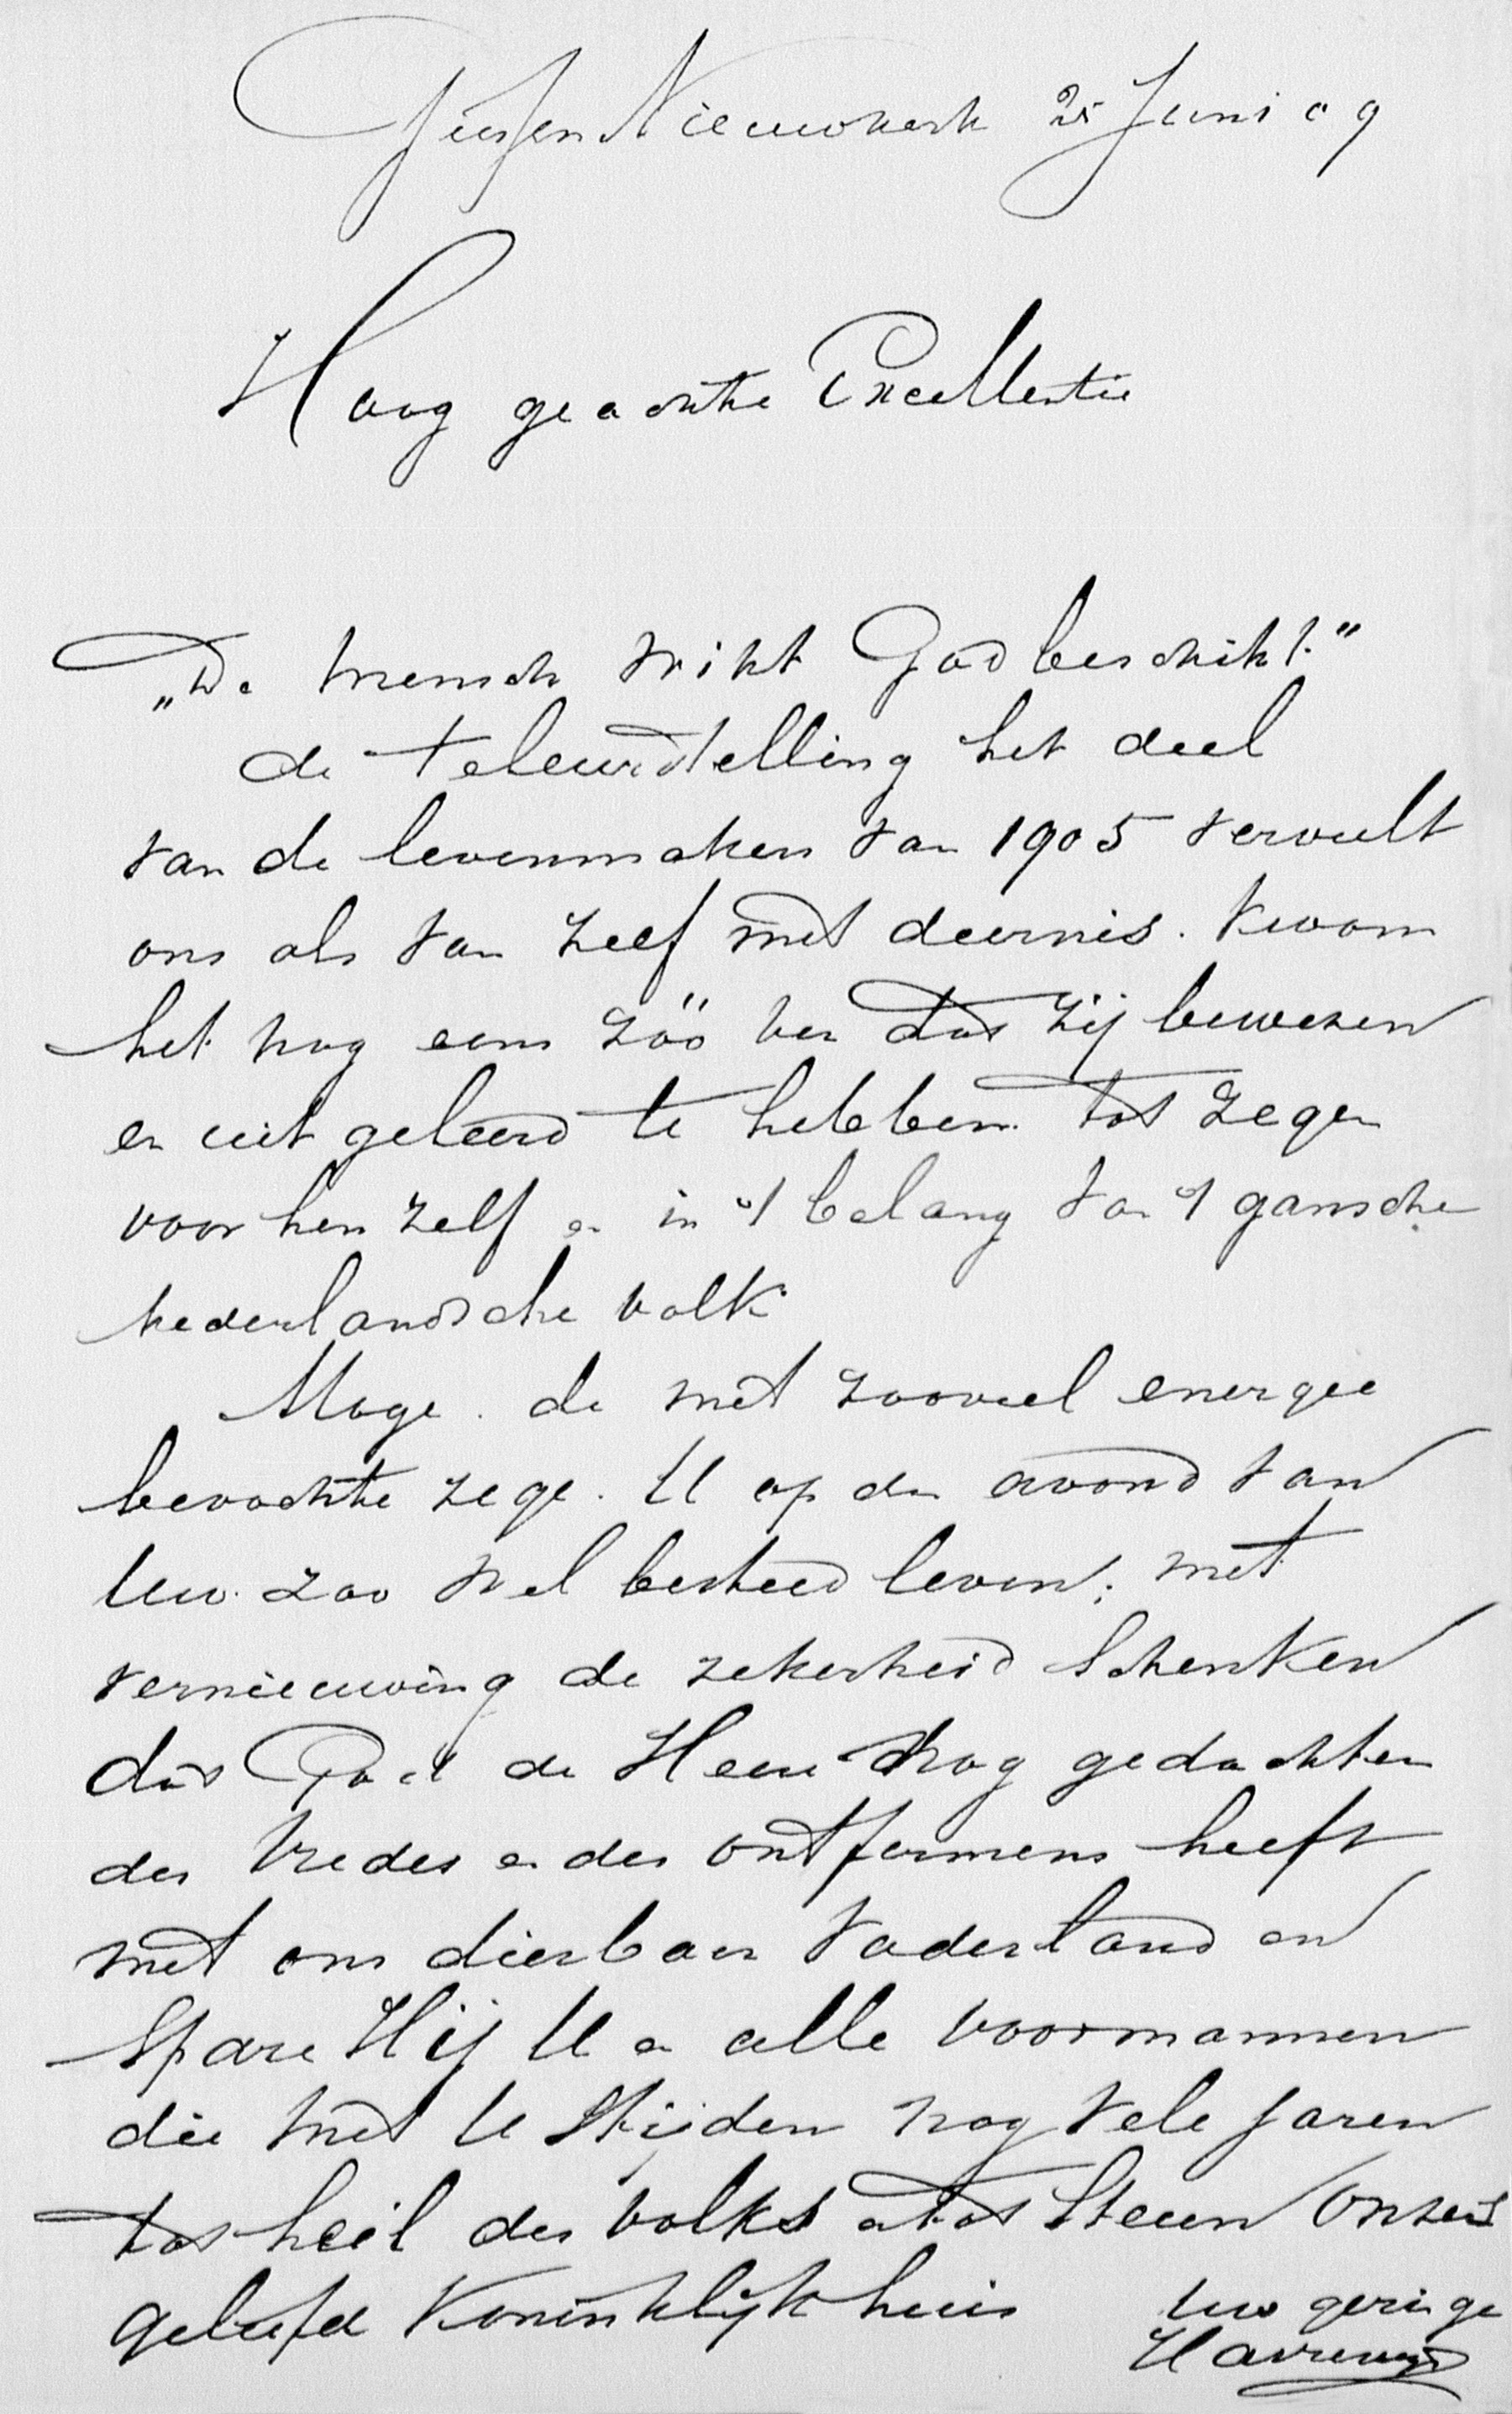 Giessen Nieuwkerk 25 Juni 09
Hoog geachte Excellentie
„De mensch wikt God beschikt."
de teleurstelling het deel
van de levenmakers van 1905 vervult
ons als van zelf met deernis. Kwam
het nog eens zóó ver dat zij bewezen
er uit geleerd te hebben tot zegen
voor hen zelf en in 't belang van 't gansche
nederlandsche volk
Moge de met zooveel energie
bevochte zege. U op den avond van
Uw zoo wel besteed leven, met
vernieuwing de zekerheid schenken
dat God de Heere nog gedachten
des vredes en des ontfermens heeft
met ons dierbaar Vaderland en
Spare Hij U en alle voormannen
die met U strijden nog vele jaren
tot heil des volks en tot steun onzes
geliefd Koninklijk huis Uw geringe